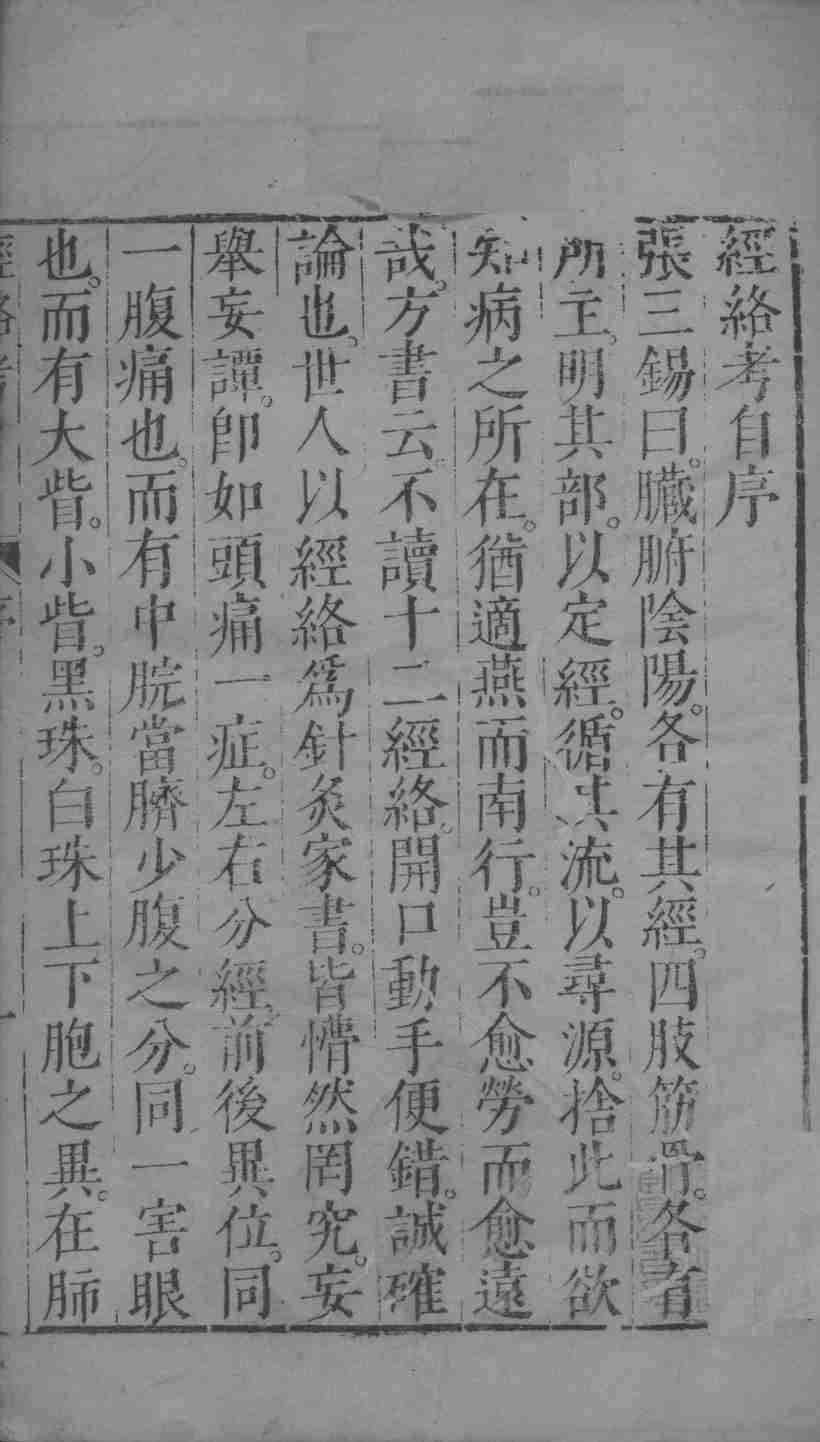 經絡考自序
張三錫曰。臟腑陰陽。各有其經。四肢筋骨。各有
所主。明其部。以定經。循其流。以尋源。捨此而欲
知病之所在。猶適燕而南行。豈不愈勞而愈遠
哉。方書云。不讀十二經絡。開口動手便錯。誠確
論也。世人以經絡爲針灸家書。皆懵然罔究。妄
舉妄譚。卽如頭痛一症。左右分經。前後異位。同
一腹痛也。而有中脘當臍少腹之分。同一害眼
也。而有大眥。小眥。黑珠。白珠上下胞之異。在肺
經絡考 序 一